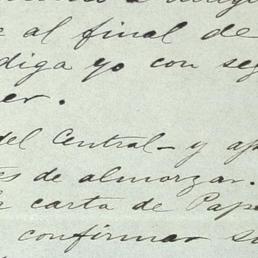 al final de
diga yo con seg
er.
del Central - y ap
es de almorzar.
carta de Pape
confirmar su